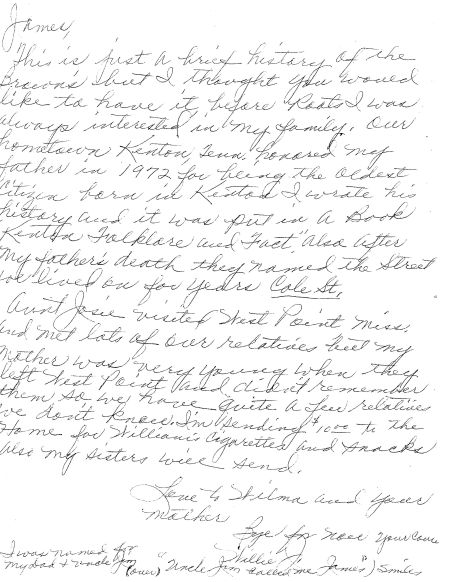 James,
This is just a brief history of the
Browns but I thought you would
like to have it, before Roots I was
always interested in my family. Our
hometown Kenton, Tenn. honored my
father in 1972 for being the oldest
Citizen born in Kenton I wrote his
history and it was put in a Book
Kenton Folklore and Fact." Also after
my father's death they named the Street
we lived on for years Cole St.
Aunt Josie visited West Point Miss.
and met lots of our relatives but my
mother was very young when they
left West Point and didn't remember
them so we have quite a few relatives
we don't know. I'm sending $10.00 to the
Home for William's Cigarettes and snacks
also my sisters will send.
Love to Wilma and your
mother
Bye for now Your Cousin
Willie J.
I was named for
my dad & uncle Jim
(over) "Uncle Jim called me James") Smiles